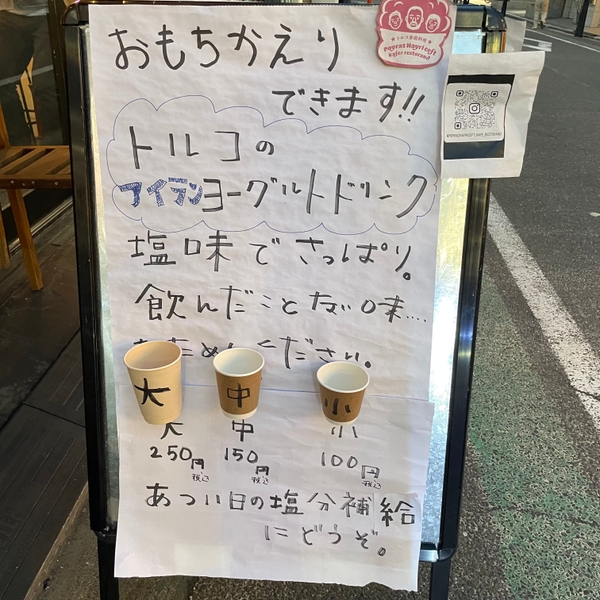 おもちかえり
できます!!
トルコの
アイランヨーグルトドリンク
塩味でさっぱり。
飲んだことない味....
おためしください。
大 中 小
大 中 小
250円税込 150円税込 100円税込
あつい日の塩分補給
にどうぞ。